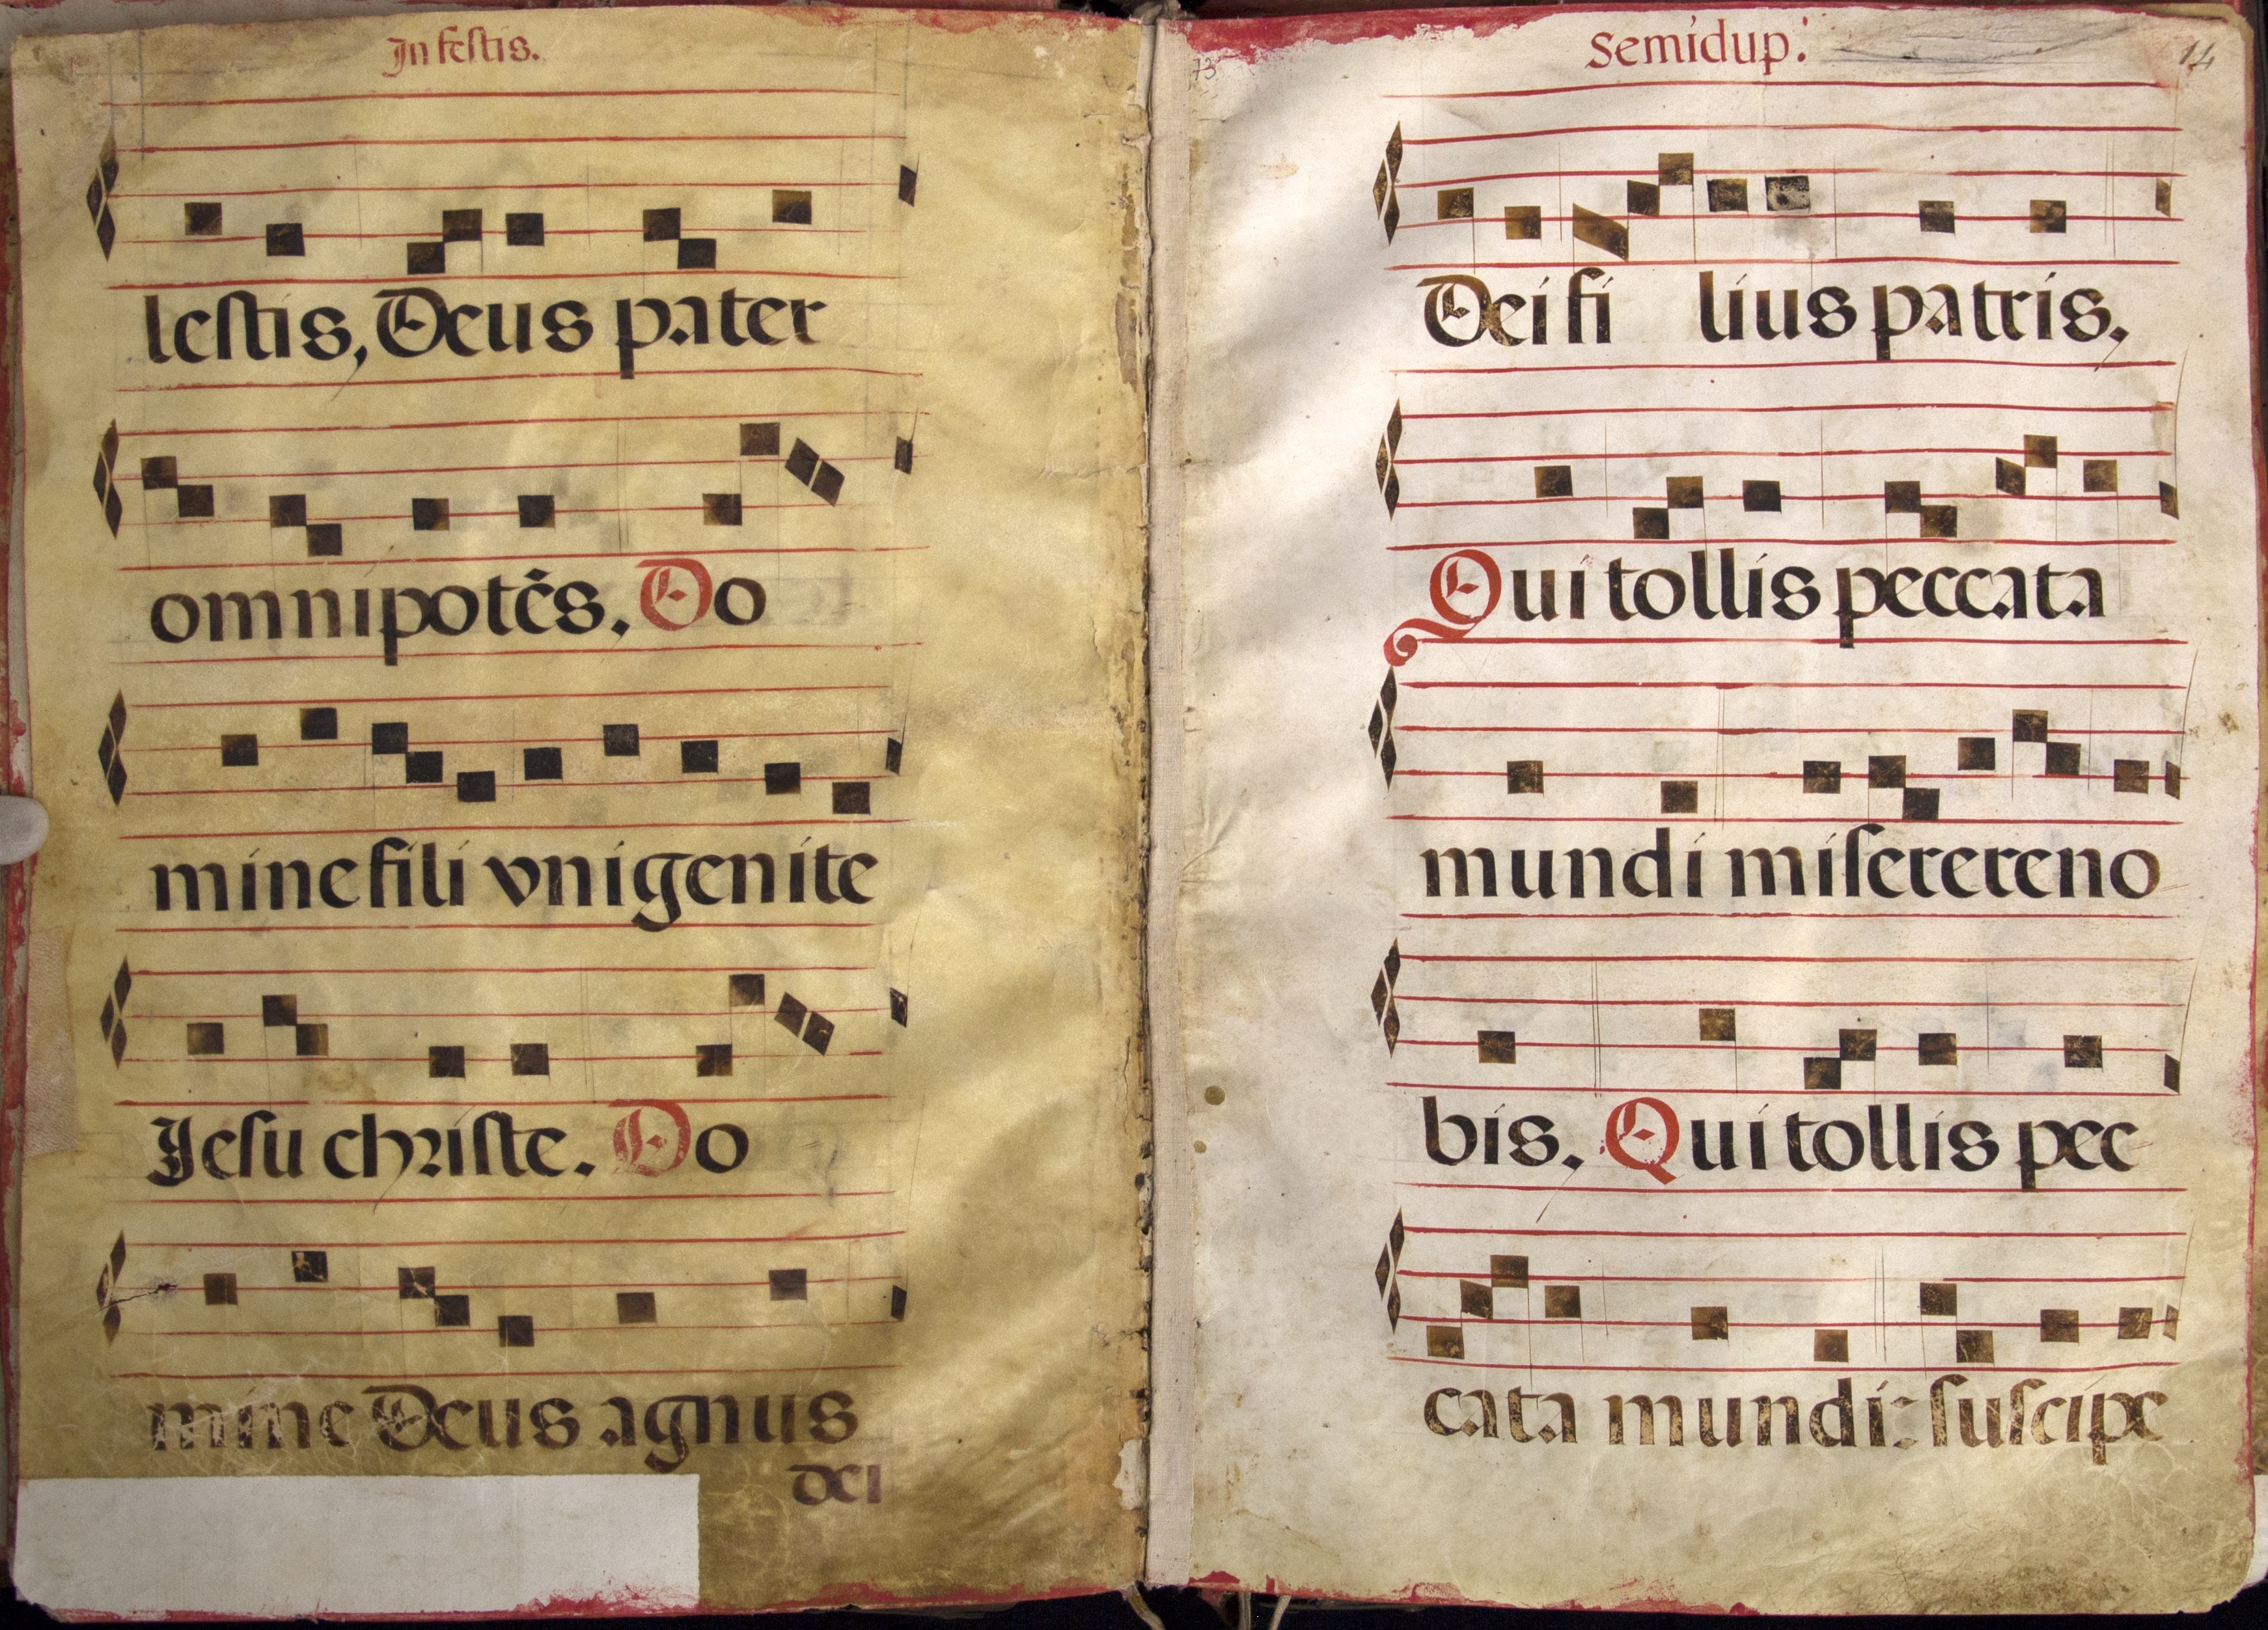 In festis.
lestis, Deus pater
omnipotēs. Do
mine fili vnigenite
Jesu christe. Do
mine Deus agnus
Dei
73
Semidup.
14
Dei fi lius patris,
Qui tollis peccata
mundi miserere no
bis. Qui tollis pec
cata mundi: suscipe